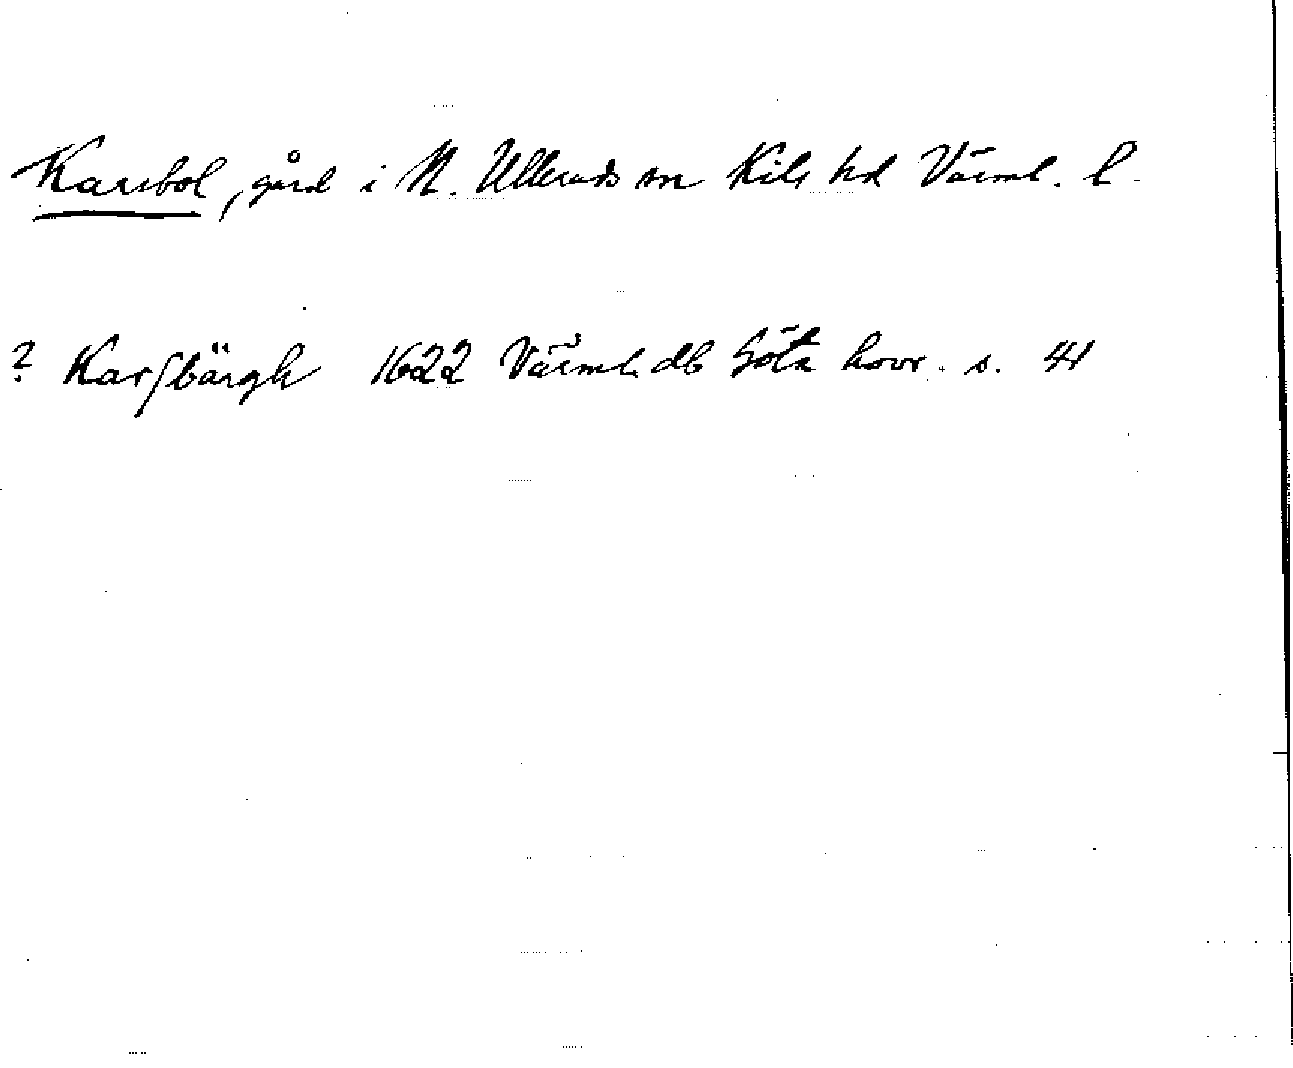 Karsbol, gård i N. Ulleruds sn Kils hd Värml. l.
? Karſbärgh 1622 Värml. db Göta hovr. s. 41